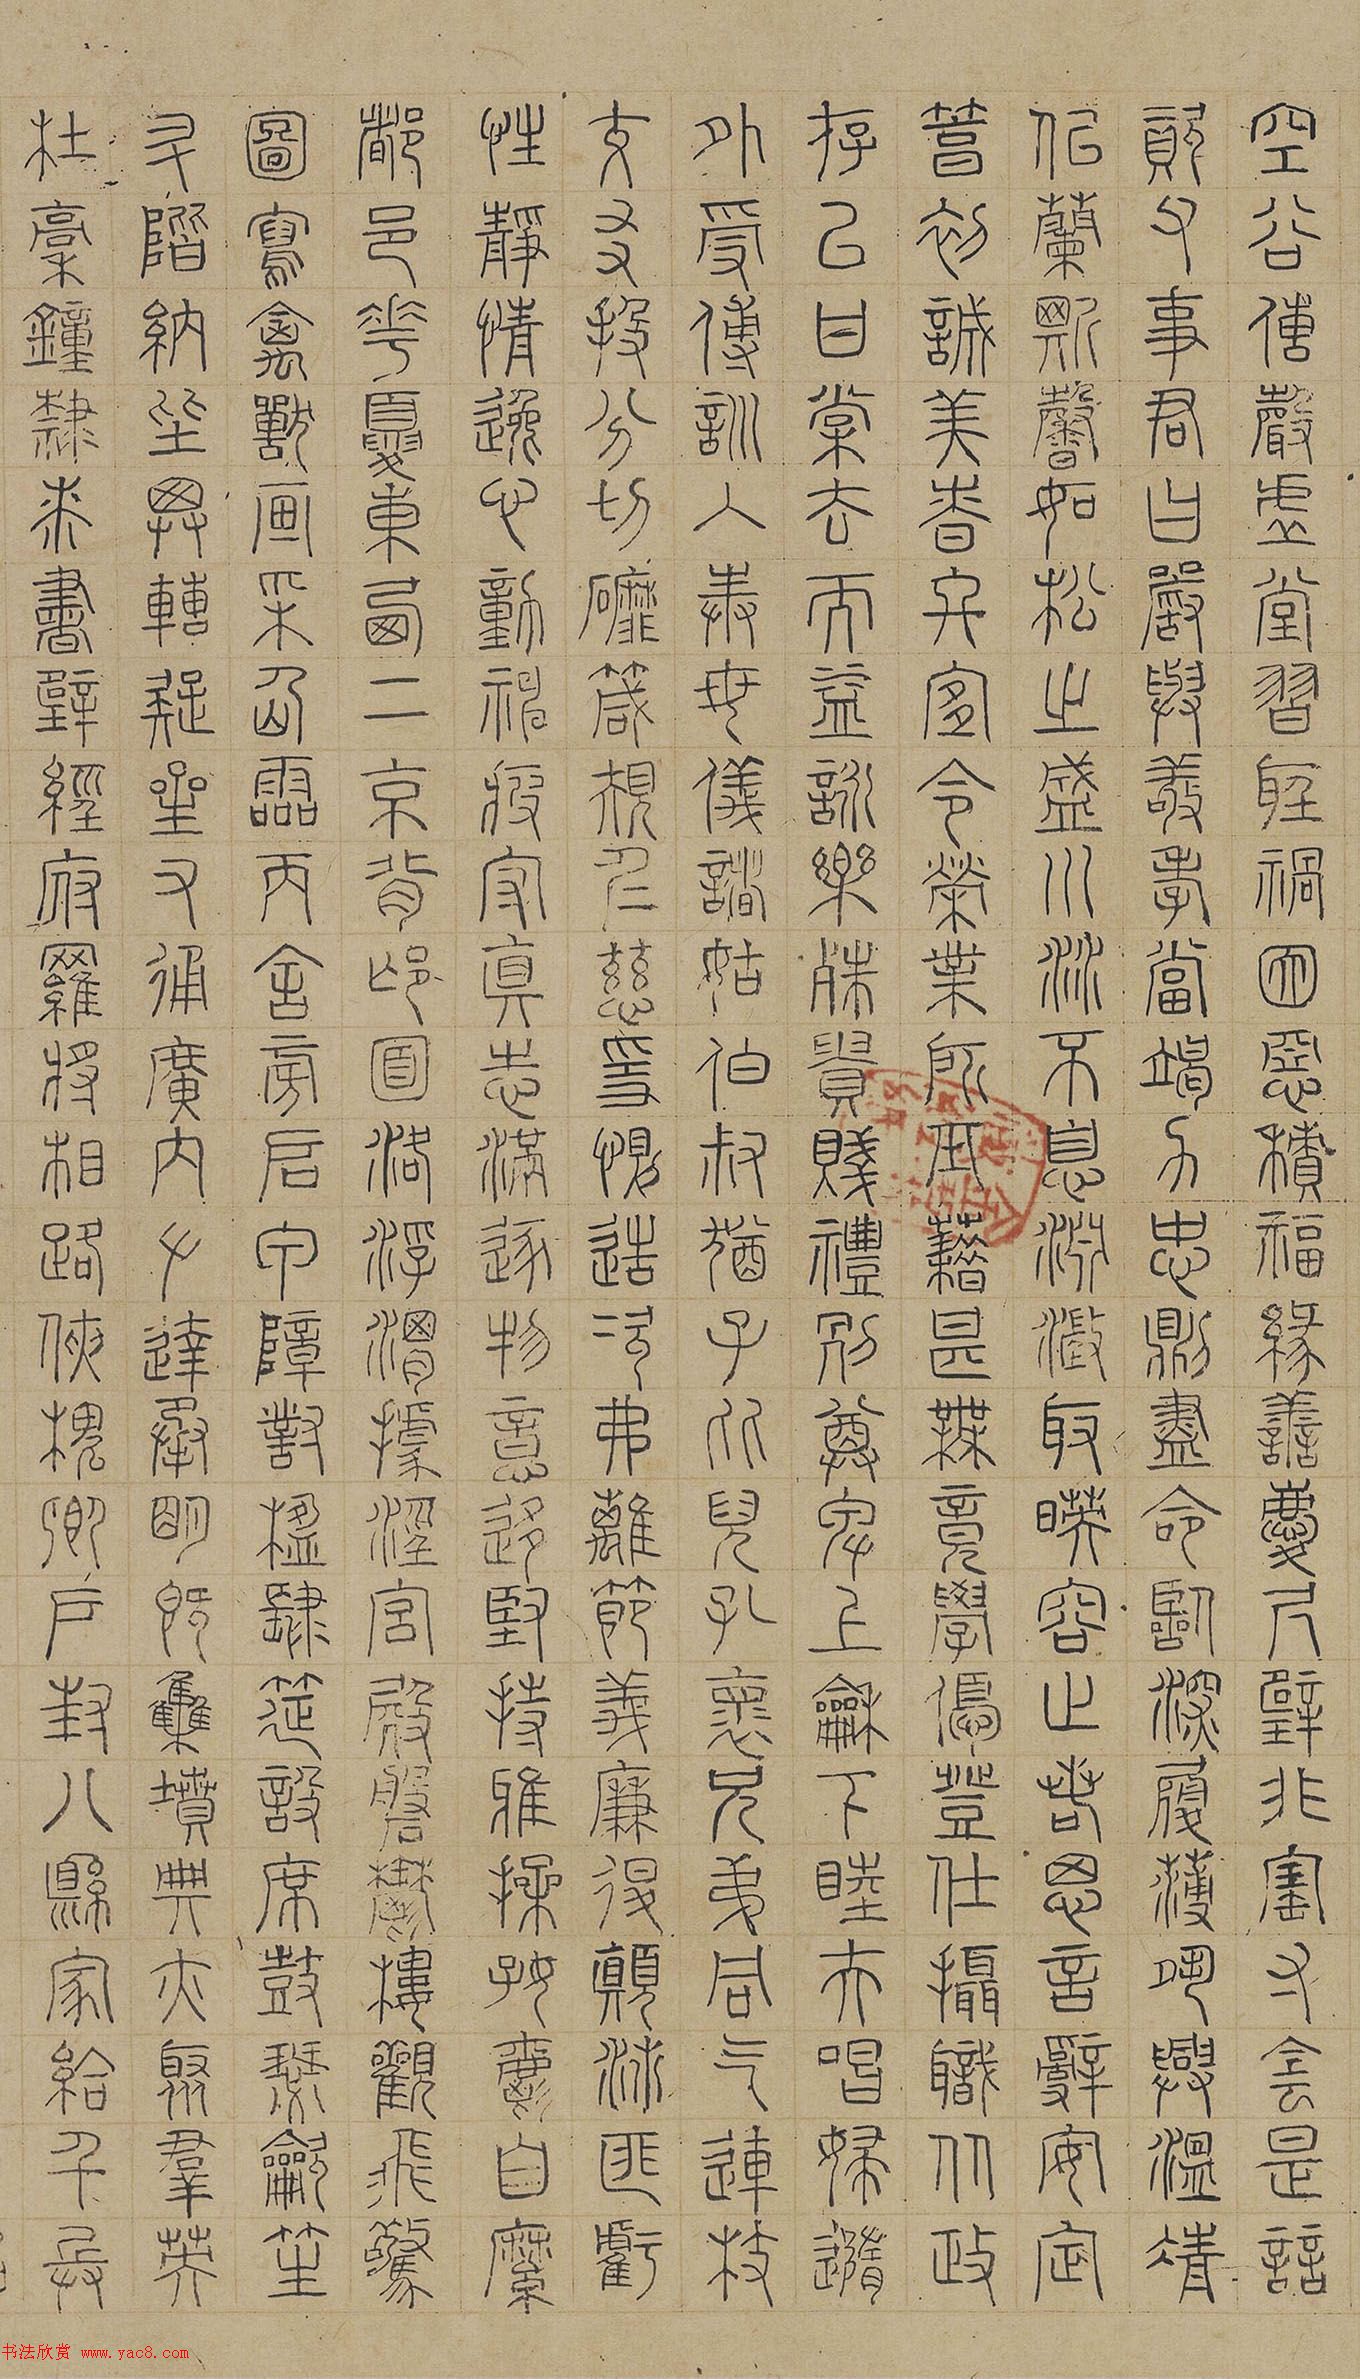 空谷傳聲虛堂習聽禍因惡積福緣善慶尺璧非寶寸陰是競
資父事君曰嚴與敬孝當竭力忠則盡命臨深履薄夙興溫凊
似蘭斯馨如松之盛川流不息淵澄取映容止若思言辭安定
篤初誠美慎終宜令榮業所基籍甚無竟學優登仕攝職從政
存以甘棠去而益詠樂殊貴賤禮別尊卑上和下睦夫唱婦隨
外受傅訓入奉母儀諸姑伯叔猶子比兒孔懷兄弟同氣連枝
交友投分切磨箴規仁慈隱惻造次弗離節義廉退顛沛匪虧
性靜情逸心動神疲守真志滿逐物意移堅持雅操好爵自縻
都邑華夏東西二京背邙面洛浮渭據涇宮殿盤鬱樓觀飛驚
圖寫禽獸畫采仙靈丙舍傍啟甲帳對楹肆筵設席鼓瑟吹笙
升階納陛弁轉疑星右通廣內左達承明既集墳典亦聚羣英
杜稾鐘隸漆書壁經府羅將相路俠槐卿戶封八縣家給千兵
书法欣赏 www.yac8.com